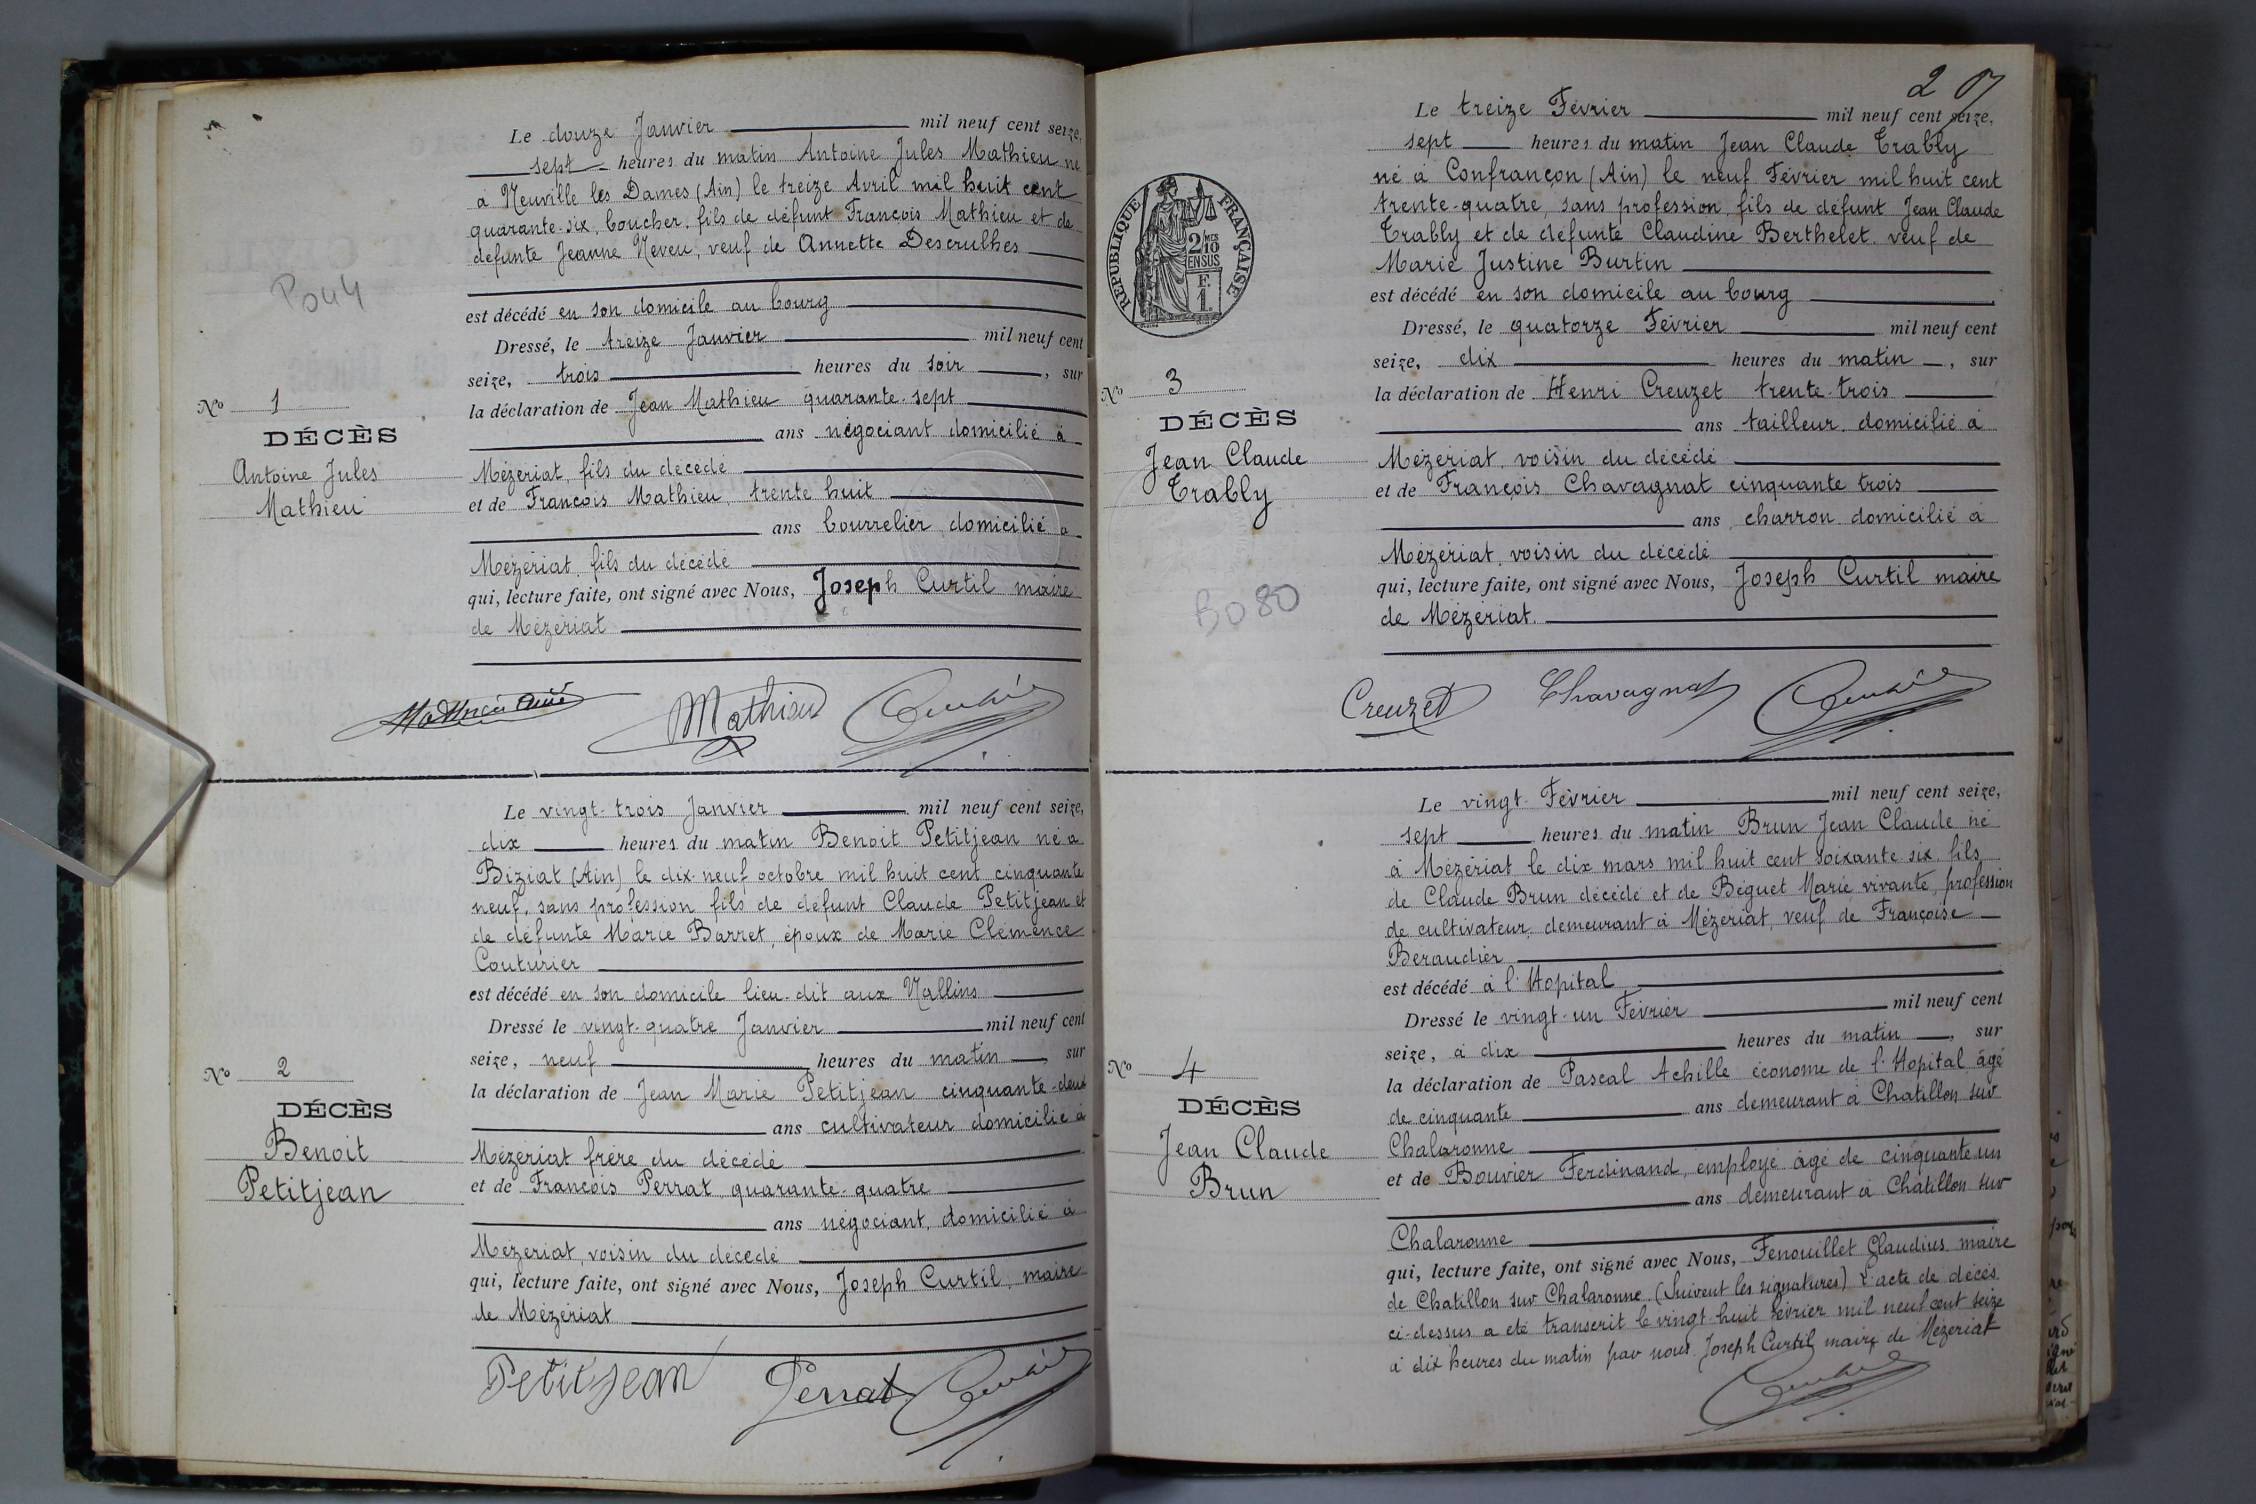 Pou4
Nº 1
DÉCÈS
Antoine Jules
Mathieu
Le douze Janvier mil neuf cent seize,
sept heures du matin Antoine Jules Mathieu né
à Neuville les Dames (Ain) le treize Avril mil huit cent
quarante-six, boucher, fils de défunt François Mathieu et de
défunte Jeanne Neveu, veuf de Annette Descrulhes
est décédé en son domicile au bourg
Dressé, le treize Janvier mil neuf cent
seize, trois heures du soir, sur
la déclaration de Jean Mathieu quarante-sept
ans négociant domicilié à
Mézériat, fils du décédé
et de François Mathieu, trente huit
ans bourrelier, domicilié à
Mézériat, fils du décédé
qui, lecture faite, ont signé avec Nous, Joseph Curtil maire
de Mézériat
Mathieu ainé Mathieu Curtil
Nº 2
DÉCÈS
Benoit
Petitjean
Le vingt-trois Janvier mil neuf cent seize,
dix heures du matin Benoit Petitjean né à
Biziat (Ain) le dix-neuf octobre mil huit cent cinquante
neuf, sans profession fils de défunt Claude Petitjean et
de défunte Marie Barret, époux de Marie Clémence
Couturier
est décédé en son domicile lieu-dit aux Vallins
Dressé le vingt-quatre Janvier mil neuf cent
seize, neuf heures du matin, sur
la déclaration de Jean Marie Petitjean cinquante-deux
ans cultivateur domicilié à
Mézériat frère du décédé
et de François Perrat, quarante-quatre
ans négociant, domicilié à
Mézériat, voisin du décédé
qui, lecture faite, ont signé avec Nous, Joseph Curtil, maire
de Mézériat
Petitjean Perrat Curtil
2
RÉPUBLIQUE FRANÇAISE
2/10 MES
EN SUS
F.
1.
Nº 3
DÉCÈS
Jean Claude
Trably
Bo80
Le treize Février mil neuf cent seize,
sept heures du matin Jean Claude Trably
né à Confrançon (Ain) le neuf Février mil huit cent
trente-quatre, sans profession, fils de défunt Jean Claude
Trably et de défunte Claudine Berthelet, veuf de
Marie Justine Burtin
est décédé en son domicile au bourg
Dressé, le quatorze Février mil neuf cent
seize, dix heures du matin, sur
la déclaration de Henri Creuzet trente-trois
ans tailleur, domicilié à
Mézériat, voisin du décédé
et de François Chavagnat cinquante trois
ans, charron domicilié à
Mézériat, voisin du décédé
qui, lecture faite, ont signé avec Nous, Joseph Curtil maire
de Mézériat.
Creuzet Chavagnat Curtil
Nº 4
DÉCÈS
Jean Claude
Brun
Le vingt Février mil neuf cent seize,
sept heures du matin Brun Jean Claude né
à Mézériat le dix mars mil huit cent soixante six, fils
de Claude Brun décédé et de Béguet Marie vivante, profession
de cultivateur, demeurant à Mézériat, veuf de Françoise
Beraudier
est décédé à l'Hopital
Dressé le vingt-un Février mil neuf cent
seize, à dix heures du matin, sur
la déclaration de Pascal Achille économe de l'Hopital âgé
de cinquante ans demeurant à Chatillon sur
Chalaronne
et de Bouvier Ferdinand, employé âgé de cinquante un
ans demeurant à Châtillon sur
Chalaronne
qui, lecture faite, ont signé avec Nous, Fenouillet Claudius maire
de Chatillon sur Chalaronne. (Suivent les signatures) L'acte de décès
ci-dessus a été transcrit le vingt-huit Février mil neuf cent seize
à dix heures du matin par nous Joseph Curtil maire de Mézériat
Curtil